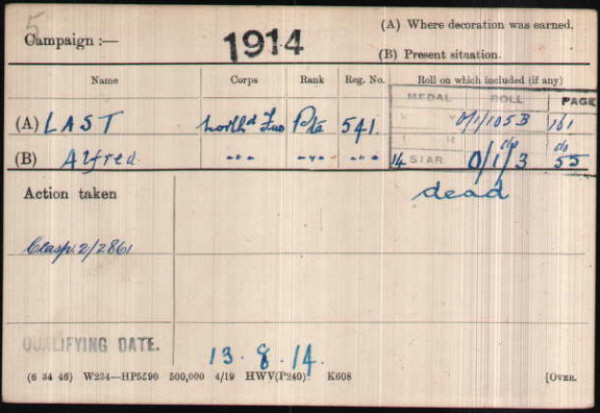 5
Campaign :— 1914 (A) Where decoration was earned.
(B) Present situation.
Name Corps Rank Reg. No. Roll on which included (if any)
MEDAL ROLL PAGE
(A) LAST North'd Fus Pte 541. " " 0/1/105B 161
(B) Alfred -"- -"- -"- -"- 14 STAR 0/1/3 do 55
Action taken dead
Clasp 2/2861
QUALIFYING DATE. 13. 8. 14.
(6 34 46) W234—HP5590 500,000 4/19 HWV(P240) K608 [OVER.